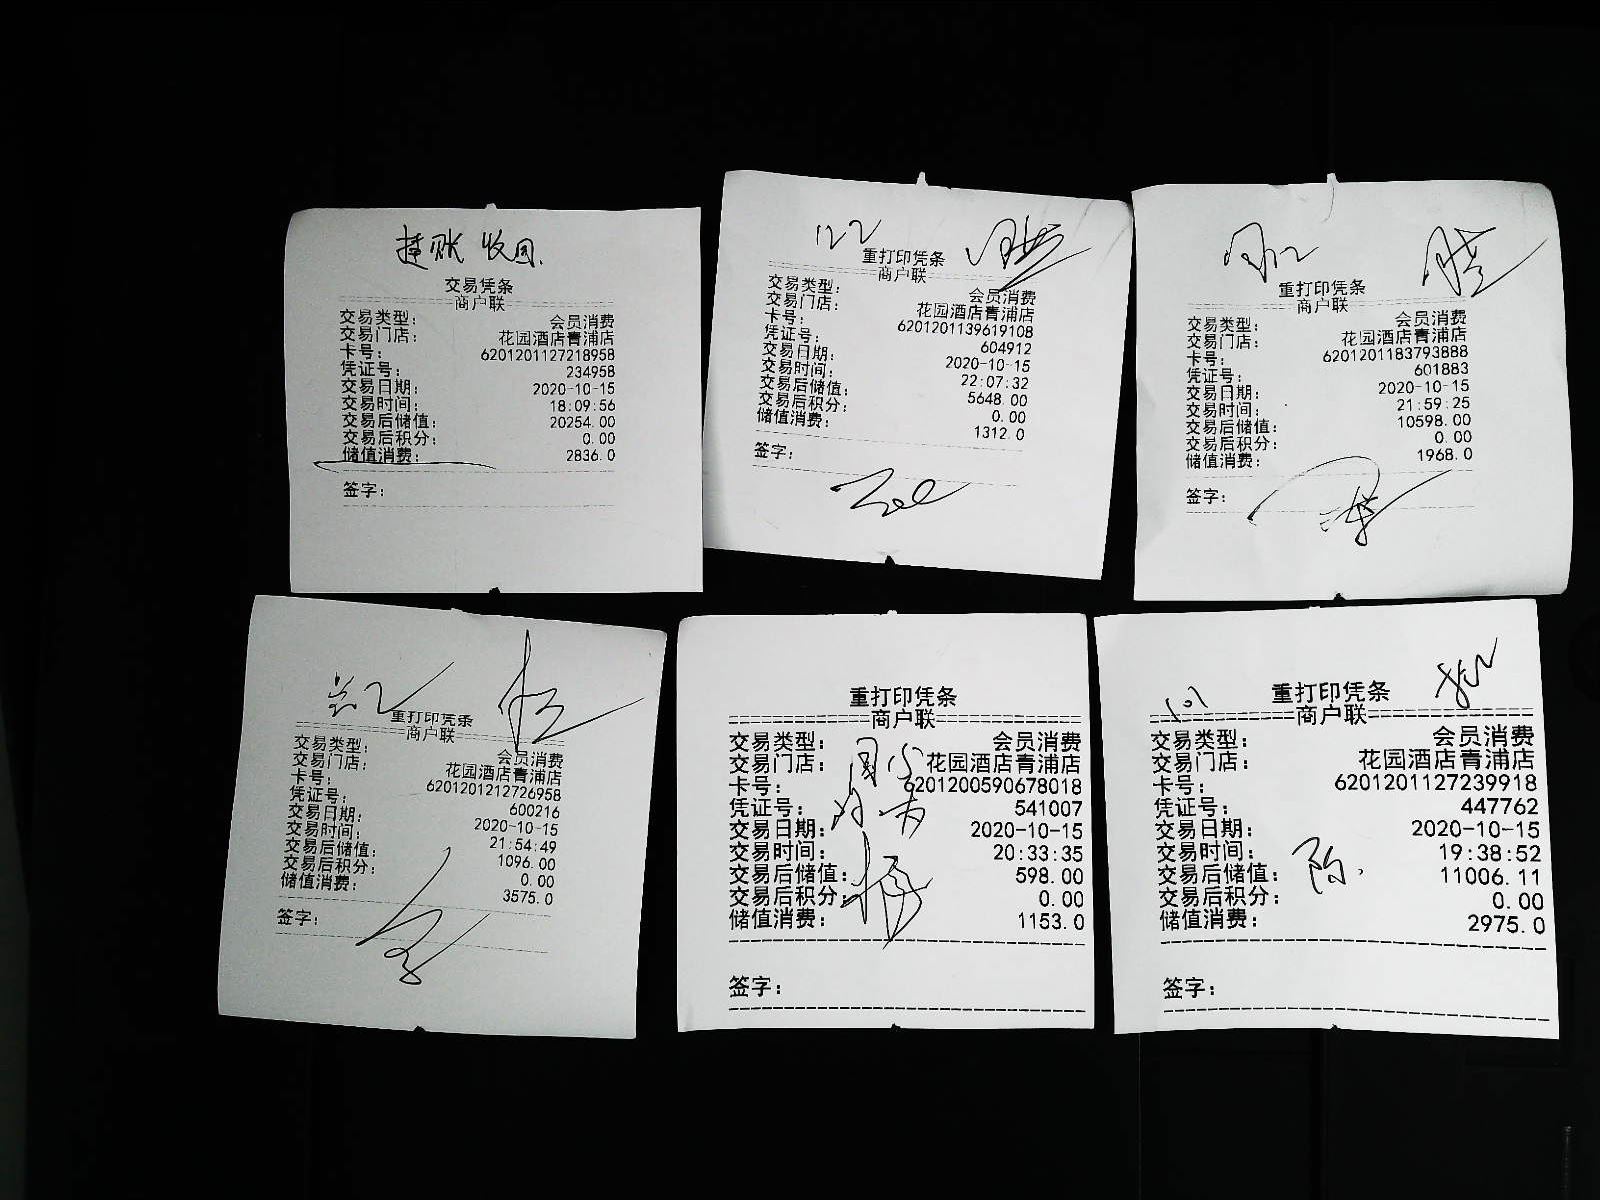 挂账收回.
交易凭条
商户联
交易类型: 会员消费
交易门店: 花园酒店青浦店
卡号: 6201201127218958
凭证号: 234958
交易日期: 2020-10-15
交易时间: 18:09:56
交易后储值: 20254.00
交易后积分: 0.00
储值消费: 2836.0
签字:
122
重打印凭条
商户联
交易类型: 会员消费
交易门店: 花园酒店青浦店
卡号: 6201201139619108
凭证号: 604912
交易日期: 2020-10-15
交易时间: 22:07:32
交易后储值: 5648.00
交易后积分: 0.00
储值消费: 1312.0
签字:
重打印凭条
商户联
交易类型: 会员消费
交易门店: 花园酒店青浦店
卡号: 6201201183793888
凭证号: 601883
交易日期: 2020-10-15
交易时间: 21:59:25
交易后储值: 10598.00
交易后积分: 0.00
储值消费: 1968.0
签字:
重打印凭条
商户联
交易类型: 会员消费
交易门店: 花园酒店青浦店
卡号: 6201201212726958
凭证号: 600216
交易日期: 2020-10-15
交易时间: 21:54:49
交易后储值: 1096.00
交易后积分: 0.00
储值消费: 3575.0
签字:
重打印凭条
商户联
交易类型: 会员消费
交易门店: 花园酒店青浦店
卡号: 6201200590678018
凭证号: 541007
交易日期: 2020-10-15
交易时间: 20:33:35
交易后储值: 598.00
交易后积分: 0.00
储值消费: 1153.0
签字:
重打印凭条
商户联
交易类型: 会员消费
交易门店: 花园酒店青浦店
卡号: 6201201127239918
凭证号: 447762
交易日期: 2020-10-15
交易时间: 19:38:52
交易后储值: 11006.11
交易后积分: 0.00
储值消费: 2975.0
签字: